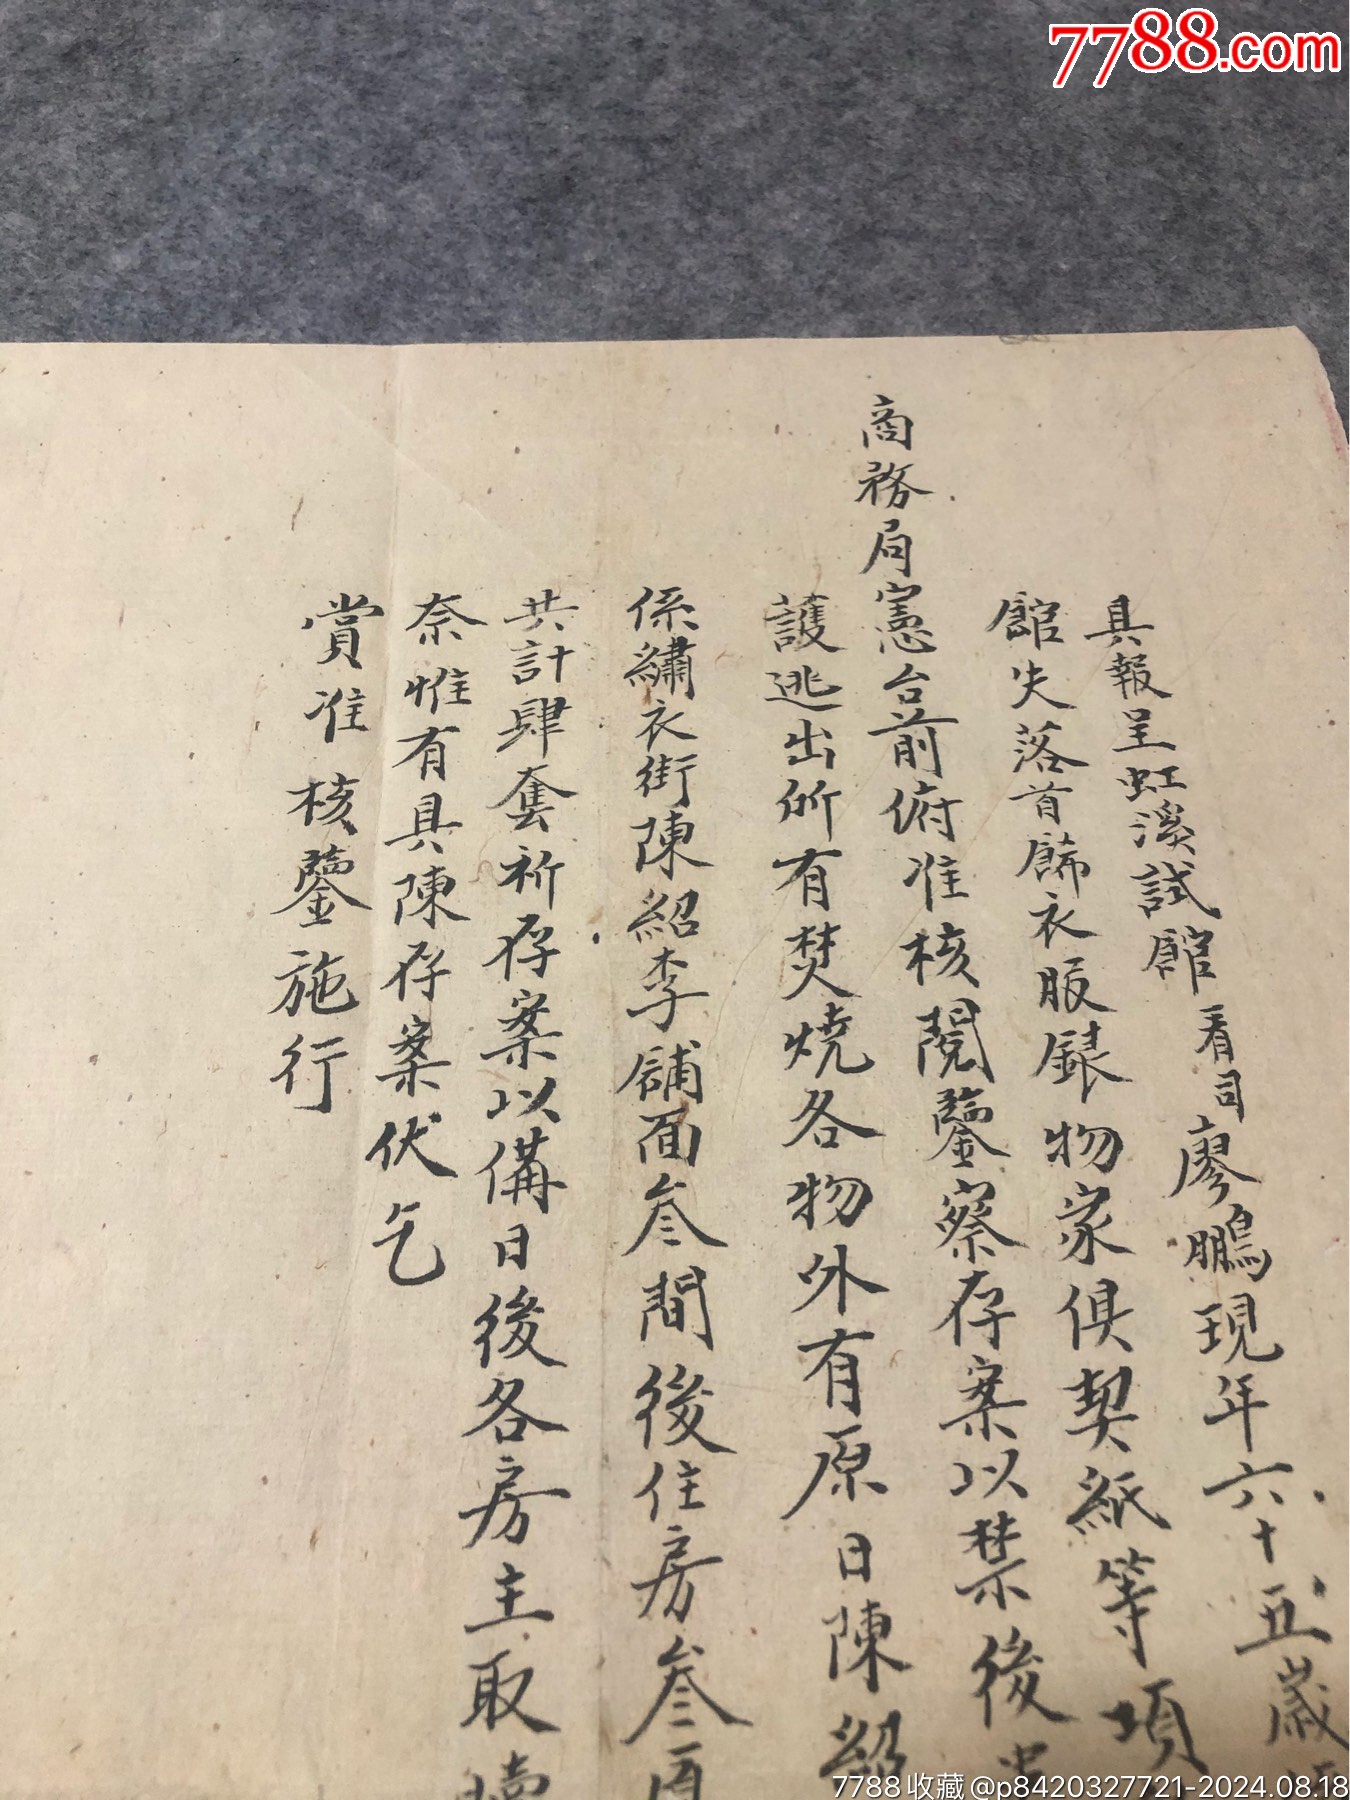 7788.com
具報呈虹溪試館看司廖鵬現年六十五歲
館失落首飾衣服銀物家俱契紙等項
商務局憲台前俯准核閱鑒察存案以禁後
護逃出所有焚燒各物外有原日陳紹
係繡衣街陳紹李舖面叁間後住房叁
共計肆套祈存案以備日後各房主取
奈惟有具陳存案伏乞
賞准核鑒施行
7788收藏@p8420327721-2024.08.18